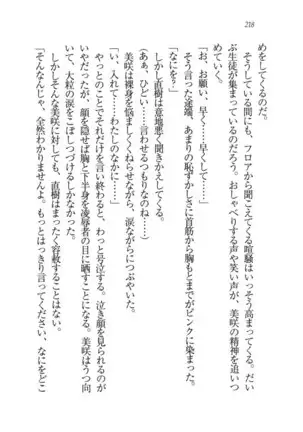 218
めをしてくるのだ。
そうしている間にも、フロアから聞こえてくる喧騒はいっそう高まってくる。だい
ぶ生徒が集まっているのだろう。おしゃべりする声や笑い声が、美咲の精神を追いつ
めていく。
「お、お願い、早く……早くして……」
そう言った途端、あまりの恥ずかしさに首筋から胸もとまでがピンクに染まった。
「なにを？」
しかし直樹は意地悪く聞きかえしてくる。
（あぁ、ひどい……言わせるつもりなのね……）
美咲は裸身を悩ましくくねらせながら、涙ながらにつぶやいた。
「い、入れて……わたしのなかに……」
やっとのことでそれだけ言い終わると、わっと号泣する。泣き顔を見られるのが
つらかったが、顔を隠せば胸と下半身を凌辱者の目に晒すことになる。美咲はうつ向
き、大粒の涙をこぼしつづけるしかなかった。
しかしそんな美咲に対しても、直樹はまったく容赦することはない。
「そんなんじゃ、全然わかりませんよ。もっとはっきり言ってください。なにをどこ